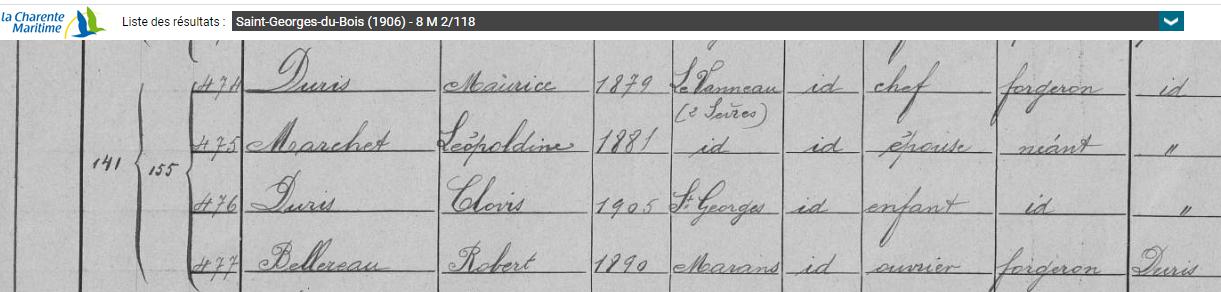 la Charente
Maritime
Liste des résultats : Saint-Georges-du-Bois (1906) - 8 M 2/118
474 Duris Maurice 1879 Le Vanneau id chef forgeron id
(2 Sèvres)
475 Marchet Léopoldine 1881 id id épouse néant "
141 155
476 Duris Clovis 1905 St Georges id enfant id "
477 Bellereau Robert 1890 Marans id ouvrier forgeron Duris